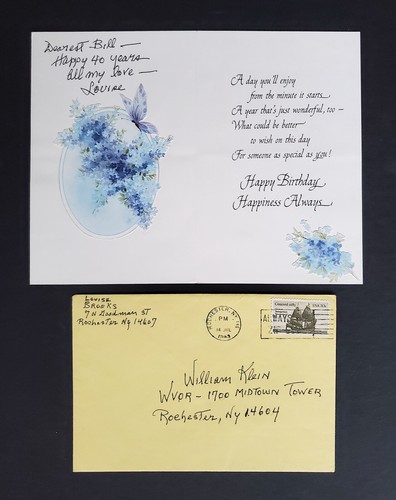 Dearest Bill —
Happy 40 Years
All my love —
Louise
A day you'll enjoy
from the minute it starts,
A year that's just wonderful, too —
What could be better
to wish on this day
For someone as special as you!
Happy Birthday
Happiness Always
Louise
Brooks
7 N Goodman St
Rochester Ny 14607
ROCHESTER, NY
PM
14 JUL
1983
ALWAYS
USA 20c
William Klein
WVOR - 1700 MIDTOWN TOWER
Rochester, Ny 14604